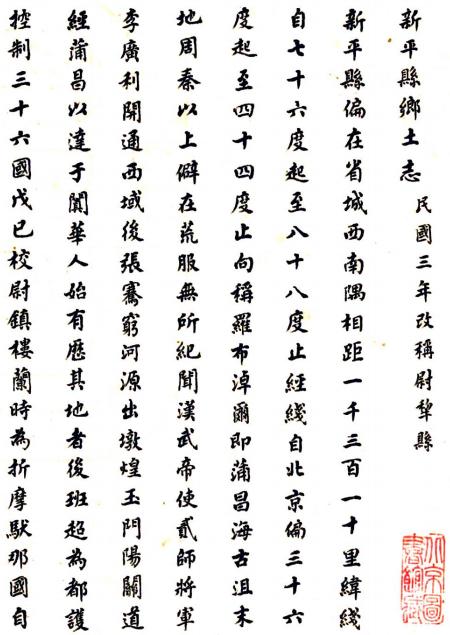 新平縣鄉土志 民國三年改稱尉犁縣
新平縣偏在省城西南隅相距一千三百一十里緯綫
自七十六度起至八十八度止經綫自北京偏三十六
度起至四十四度止向稱羅布淖爾即蒲昌海古沮末
地周秦以上僻在荒服無所紀聞漢武帝使貳師將軍
李廣利開通西域後張騫窮河源出墩煌玉門陽關道
經蒲昌以達于闐華人始有歷其地者後班超為都護
控制三十六國戊巳校尉鎮樓蘭時為折摩馱那國自